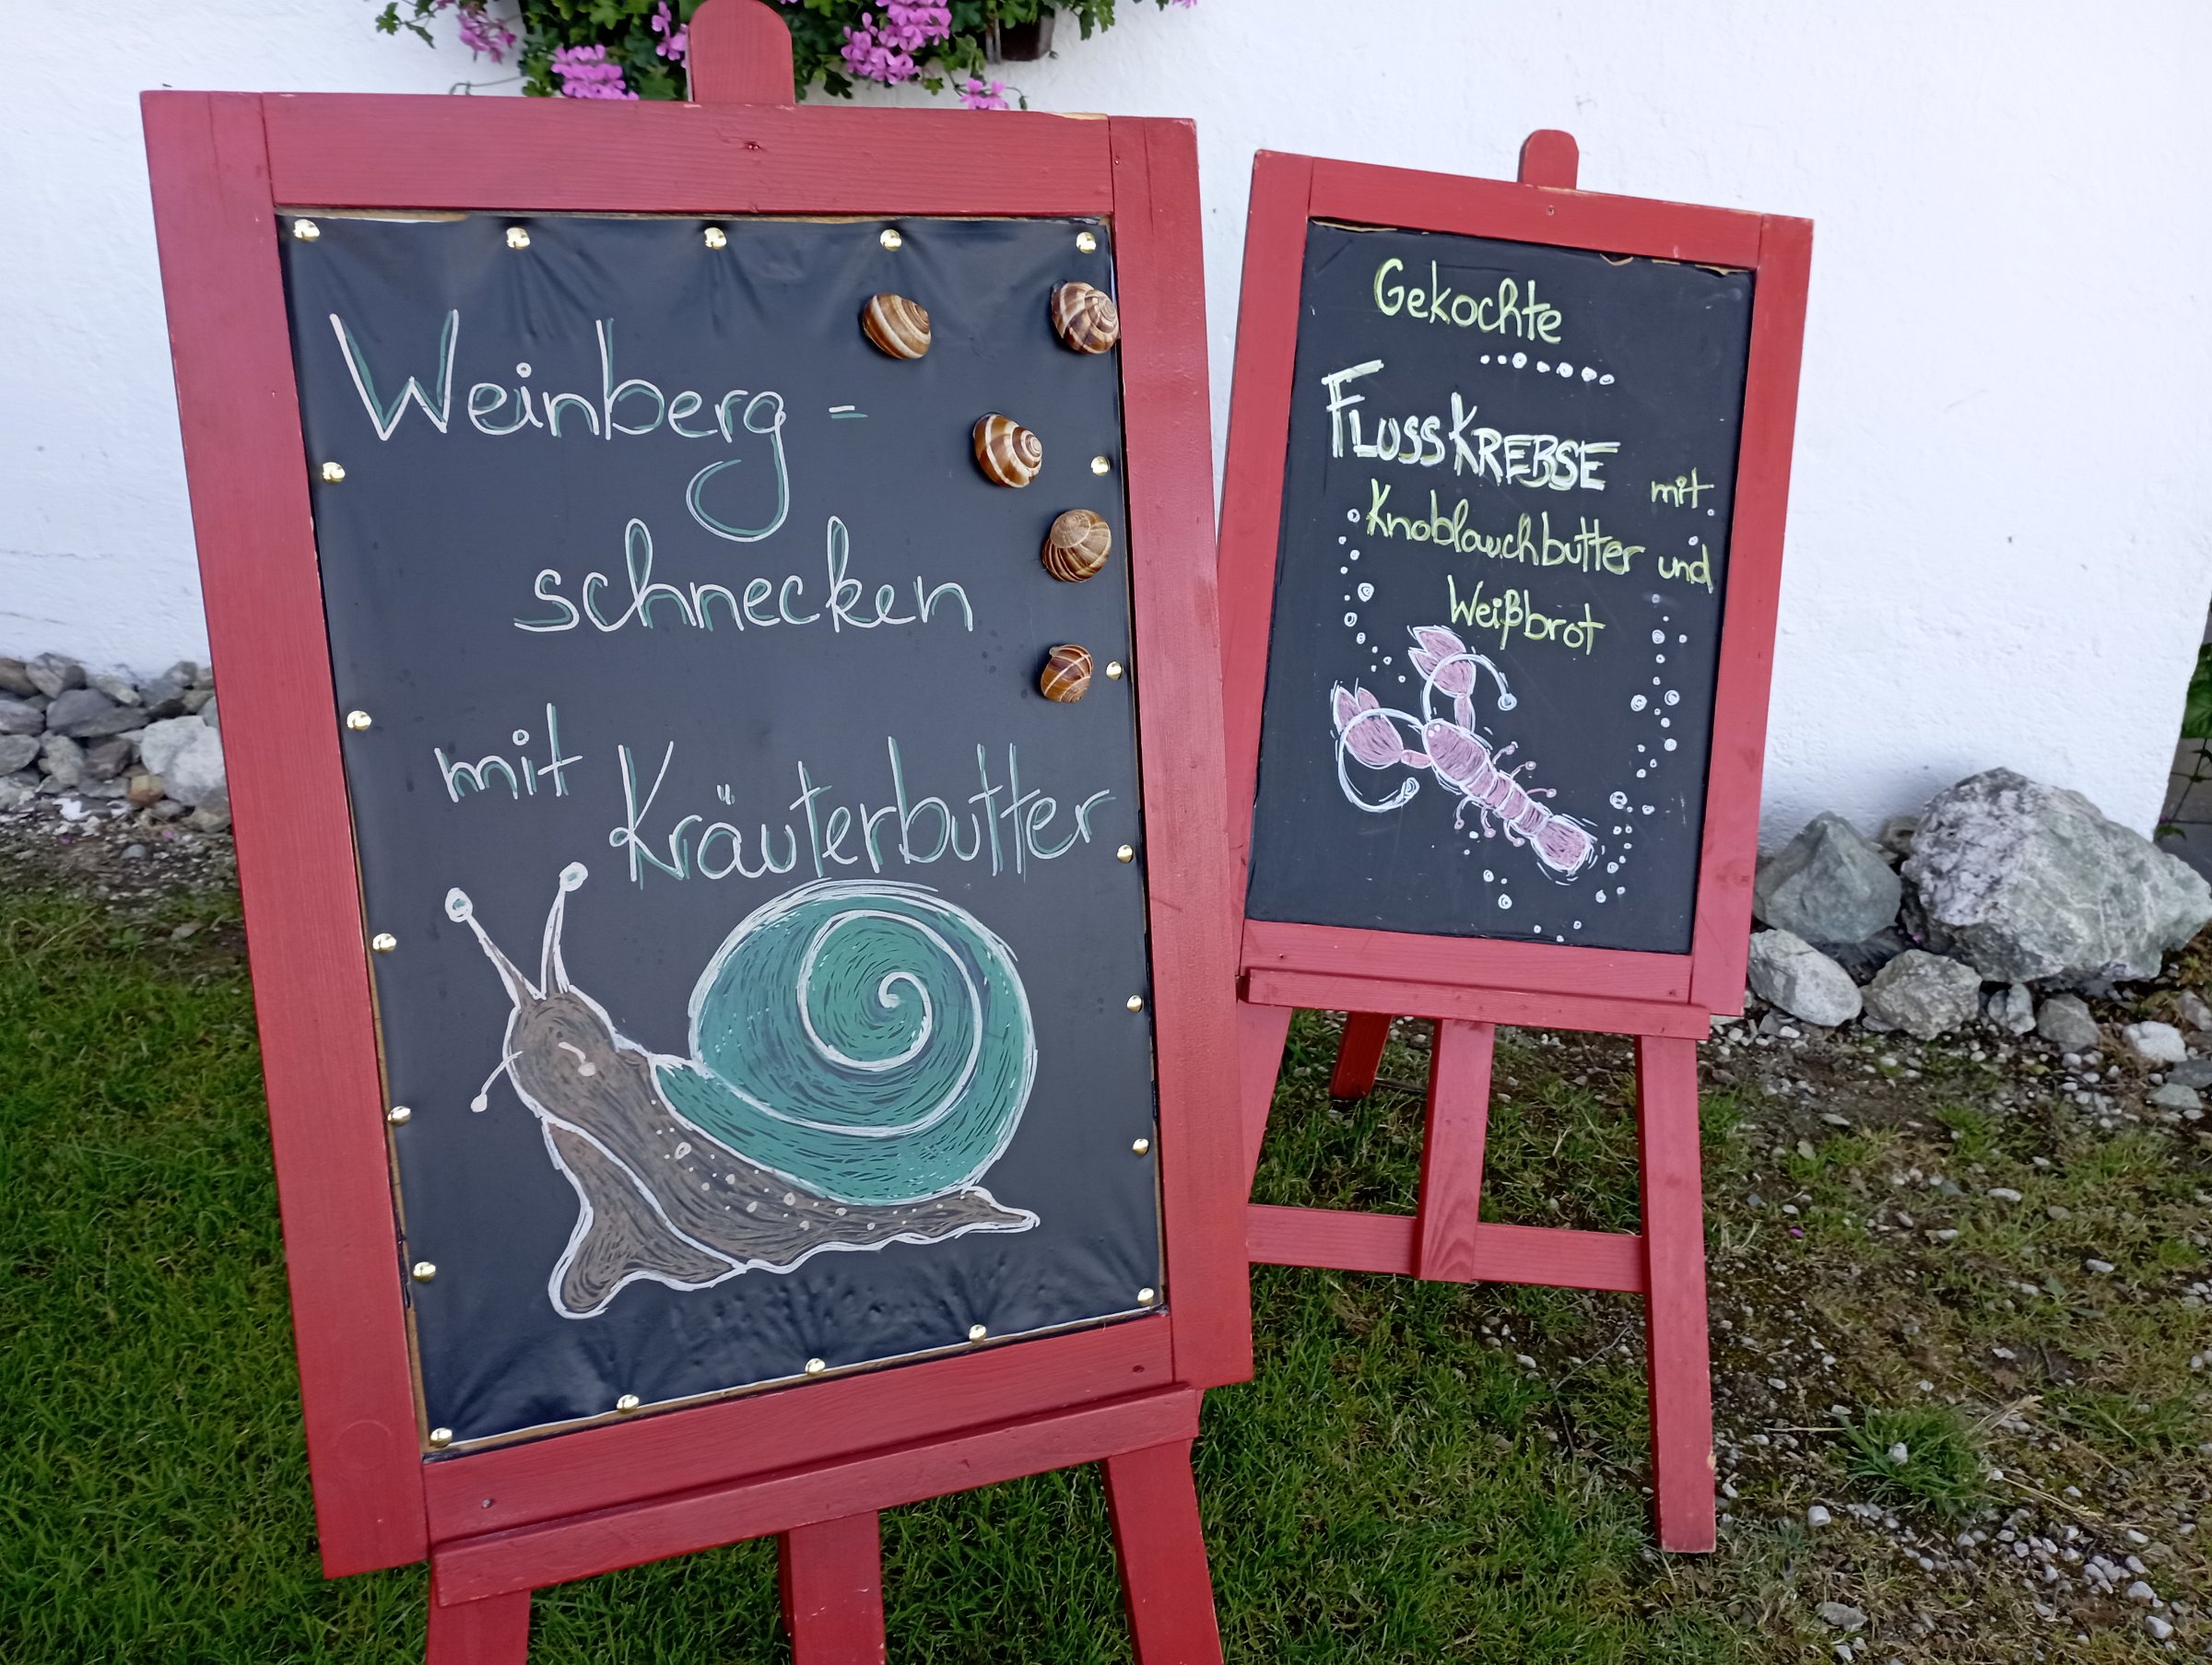 Weinberg-
schnecken
mit Kräuterbutter
Gekochte
FLUSSKREBSE mit
Knoblauchbutter und
Weißbrot